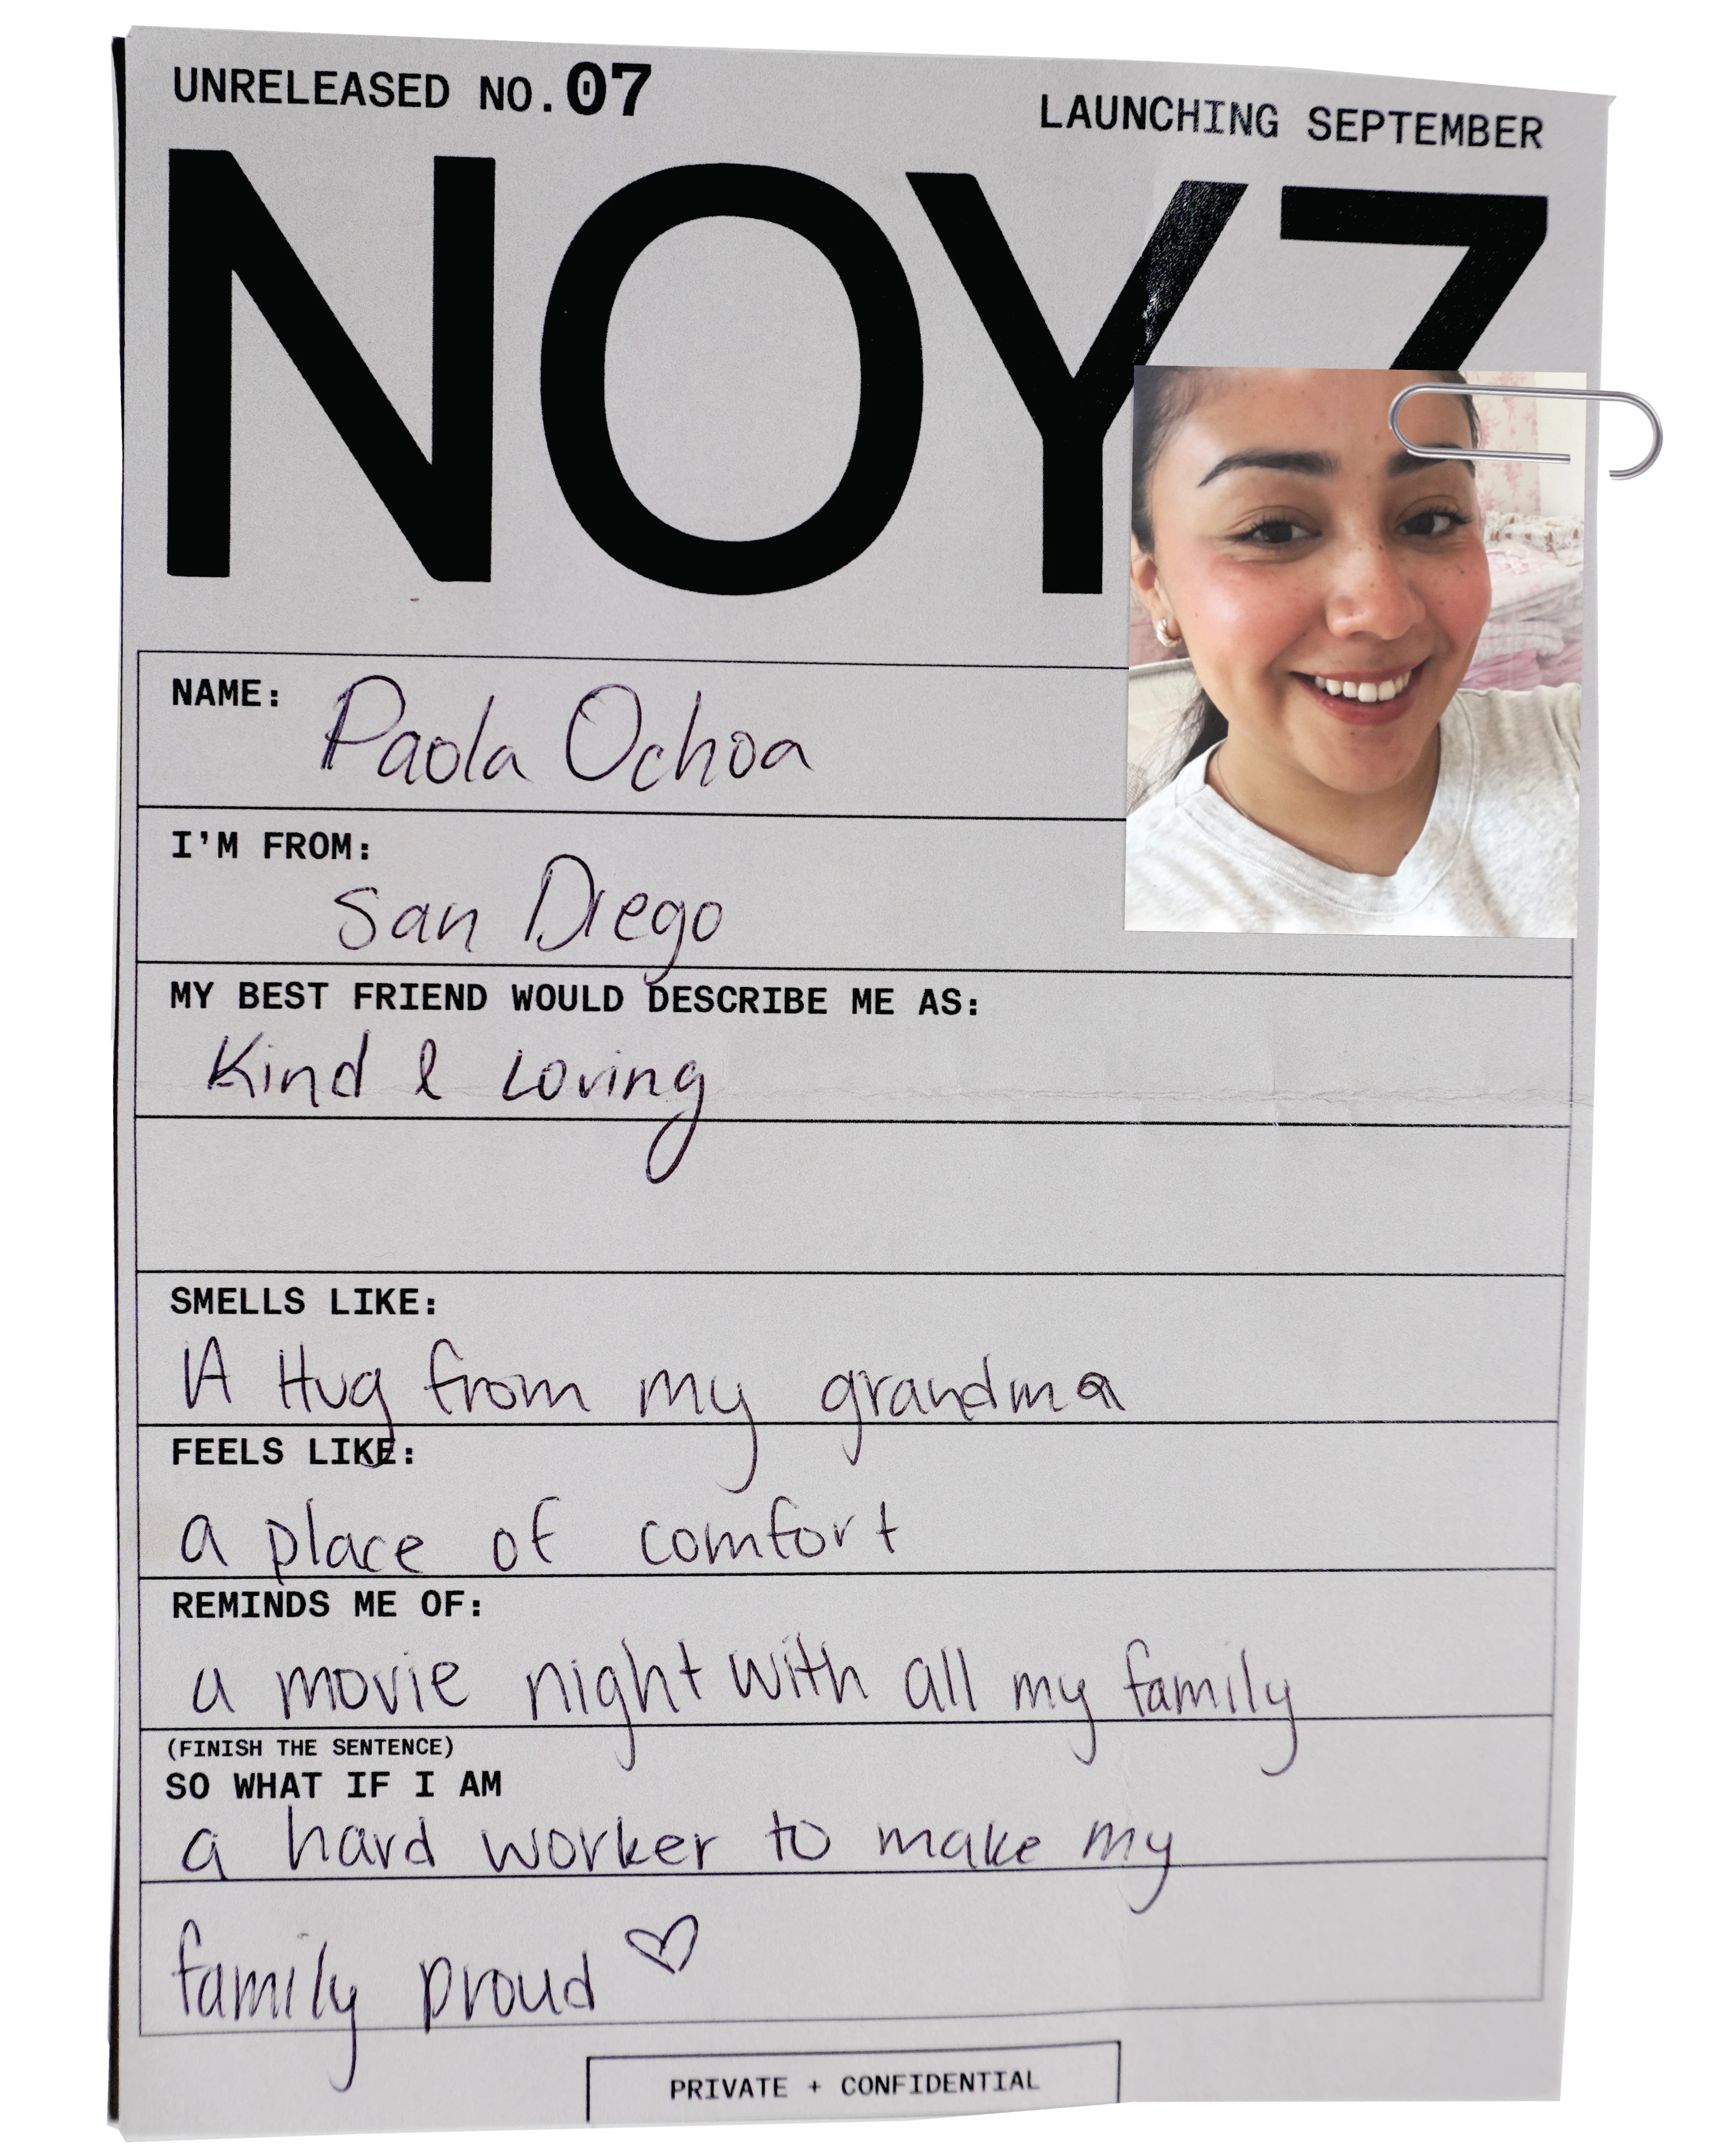 UNRELEASED NO.07
LAUNCHING SEPTEMBER
NOYZ
NAME: Paola Ochoa
I'M FROM:
San Diego
MY BEST FRIEND WOULD DESCRIBE ME AS:
Kind & Loving
SMELLS LIKE:
A Hug from my grandma
FEELS LIKE:
a place of comfort
REMINDS ME OF:
a movie night with all my family
(FINISH THE SENTENCE)
SO WHAT IF I AM
a hard worker to make my
family proud ♡
PRIVATE + CONFIDENTIAL